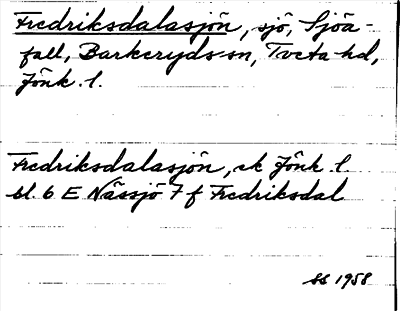 Fredriksdalasjön, sjö, Sjöa-
fall, Barkeryds sn, Tveta hd,
Jönk. l.
Fredriksdalasjön, ek Jönk. l
bl. 6 E Nässjö 7 f Fredriksdal
SS 1958